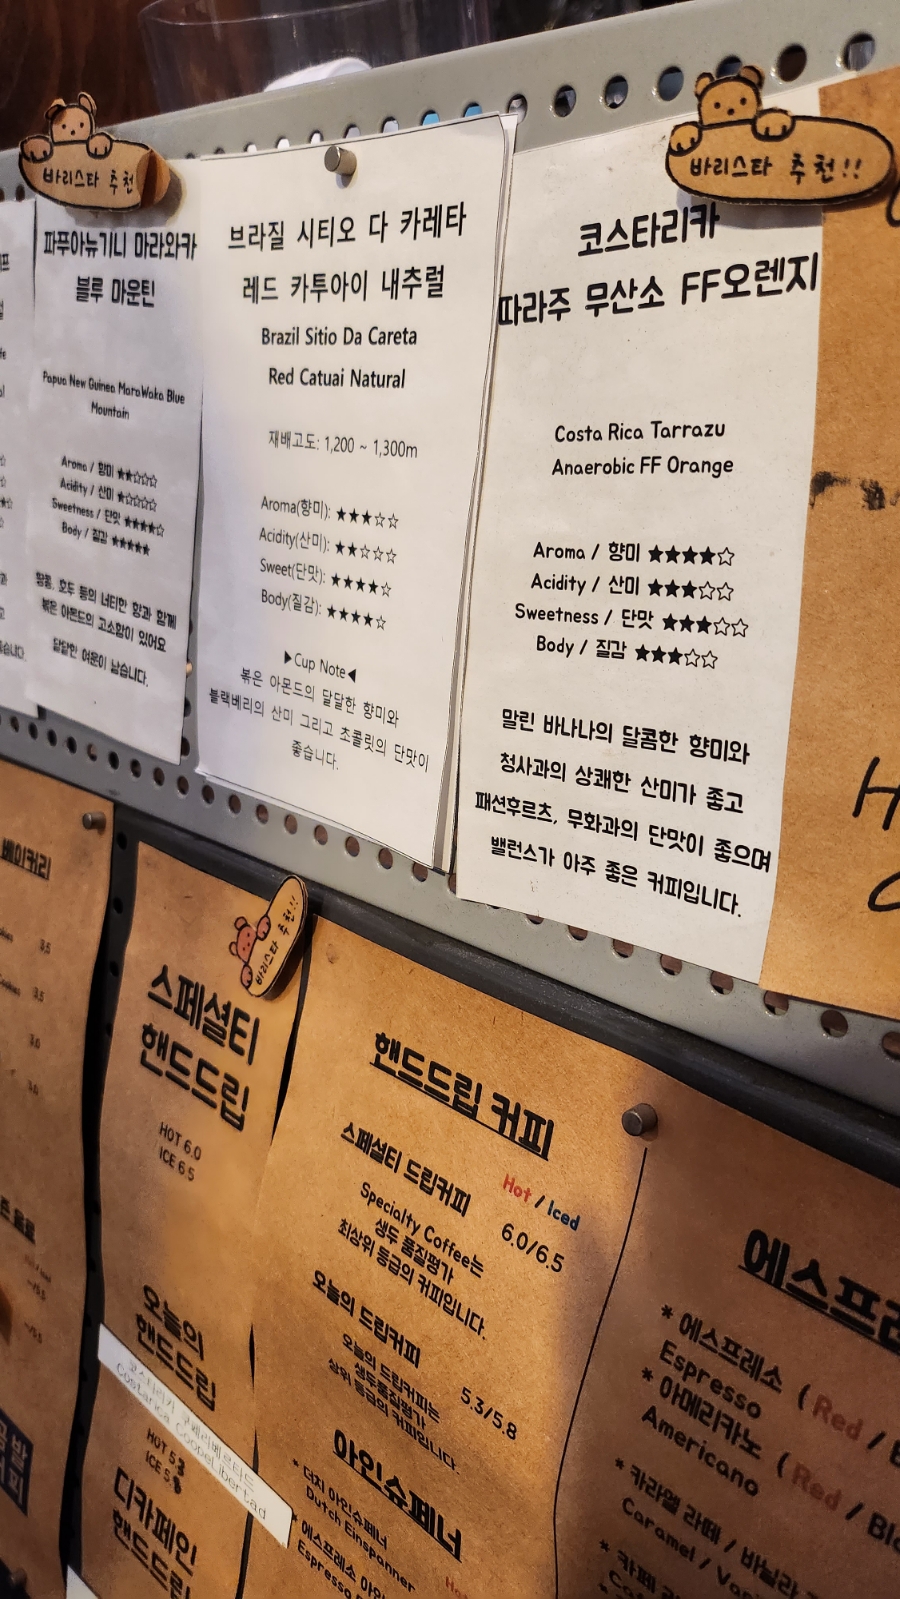 바리스타 추천
파푸아뉴기니 마라와카
블루 마운틴
Papua New Guinea MaraWaka Blue
Mountain
Aroma / 향미 ★★☆☆☆
Acidity / 산미 ★☆☆☆☆
Sweetness / 단맛 ★★★★☆
Body / 질감 ★★★★★
땅콩, 호두 등의 너티한 향과 함께
볶은 아몬드의 고소함이 있어요
달달한 여운이 남습니다.
브라질 시티오 다 카레타
레드 카투아이 내추럴
Brazil Sitio Da Careta
Red Catuai Natural
재배고도: 1,200 ~ 1,300m
Aroma(향미): ★★★☆☆
Acidity(산미): ★★☆☆☆
Sweet(단맛): ★★★★☆
Body(질감): ★★★★☆
▶Cup Note◀
볶은 아몬드의 달달한 향미와
블랙베리의 산미 그리고 초콜릿의 단맛이
좋습니다.
바리스타 추천!!
코스타리카
따라주 무산소 FF오렌지
Costa Rica Tarrazu
Anaerobic FF Orange
Aroma / 향미 ★★★★☆
Acidity / 산미 ★★★☆☆
Sweetness / 단맛 ★★★☆☆
Body / 질감 ★★★☆☆
말린 바나나의 달콤한 향미와
청사과의 상쾌한 산미가 좋고
패션후르츠, 무화과의 단맛이 좋으며
밸런스가 아주 좋은 커피입니다.
베이커리
3.5
3.5
3.0
바리스타 추천!!
스페셜티
핸드드립
HOT 6.0
ICE 6.5
오늘의
핸드드립
코스타리카 쿠페리베르타드
CostaRica CoopeLibertad
HOT 5.3
ICE 5.8
디카페인
핸드드립
핸드드립 커피
Hot / Iced
스페셜티 드립커피 6.0/6.5
Specialty Coffee는
생두 품질평가
최상위 등급의 커피입니다.
오늘의 드립커피 5.3/5.8
오늘의 드립커피는
생두품질평가
상위 등급의 커피입니다.
아인슈페너
* 더치 아인슈페너
Dutch Einspanner
* 에스프레소 아인
Espresso
에스프레
* 에스프레소 ( Red / B
Espresso
* 아메리카노 ( Red / Bla
Americano
* 카라멜 라떼 / 바닐라
Caramel / Vani
* 카페